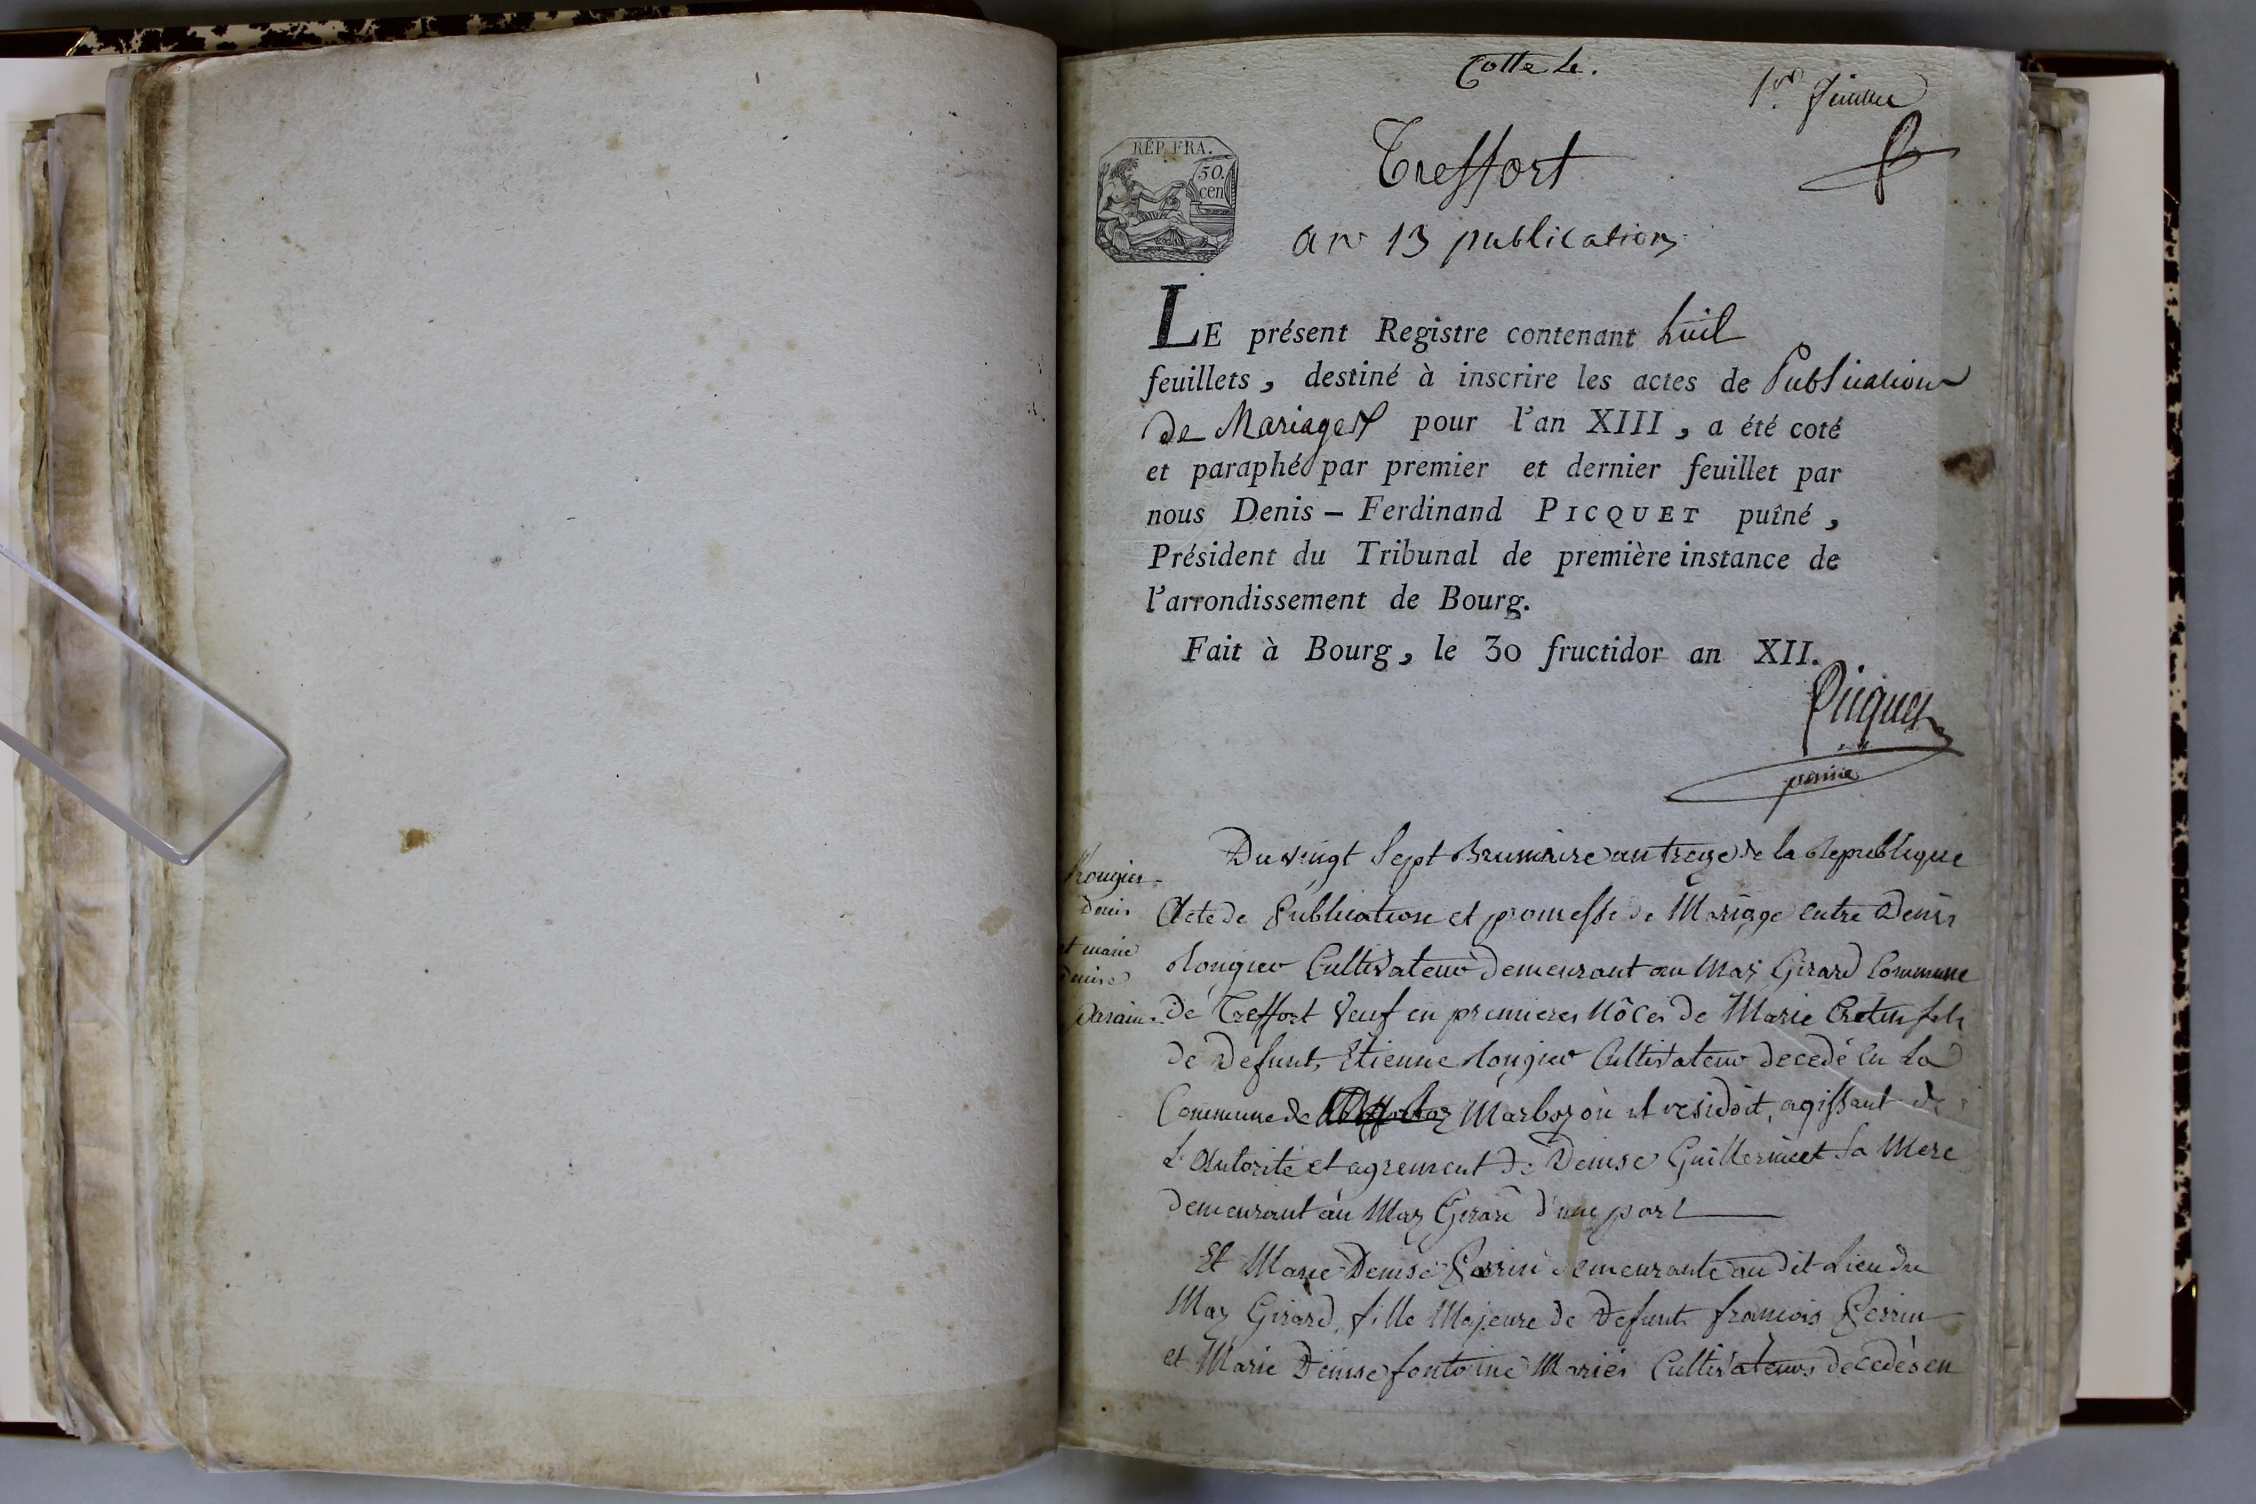 Cotte Le.
1er feuillet
RÉP. FRA.
50.
cen
Treffort
an 13 publications
LE présent Registre contenant huit
feuillets, destiné à inscrire les actes de Publication
de Mariages pour l'an XIII, a été coté
et paraphé par premier et dernier feuillet par
nous Denis - Ferdinand PICQUET puîné,
Président du Tribunal de première instance de
l'arrondissement de Bourg.
Fait à Bourg, le 30 fructidor an XII.
Picquet
Rougier
Denis
et marie
denise
Du vingt Sept Brumaire an treize de la Republique
Acte de Publication et promesse de Mariage entre Denis
Rougier Cultivateur demeurant au Maz Girard Commune
de Treffort Veuf en premieres Nôces de Marie Cretin fils
de Defunt Etienne Rougier Cultivateur decedé en La
Commune de Marboz où il residoit, agissant de
L'Autorité et agrement de Denise Guillerminet Sa Mere
demeurant au Maz Girard d'une part
Et Marie Denise Perrin demeurante au dit Lieu du
Maz Girard, fille Majeure de Defunts francois Perrin
et Marie Denise fontaine Mariés Cultivateurs decedés en